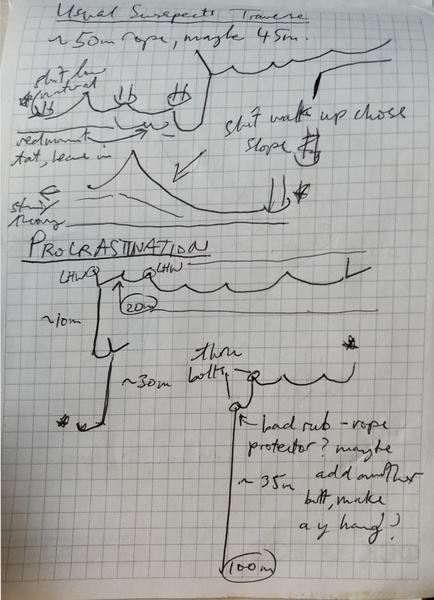 Usual Suspects Traverse
~50m rope, maybe 45m.
shit low
natural
redundant
tat, leave in
shit walk up choss
slope
PROCRASTINATION
LHW
LHW
20m
~10m
~30m
thru
bolts
bad rub - rope
protector? maybe
~35m add another
bolt, make
a y hang?
100m